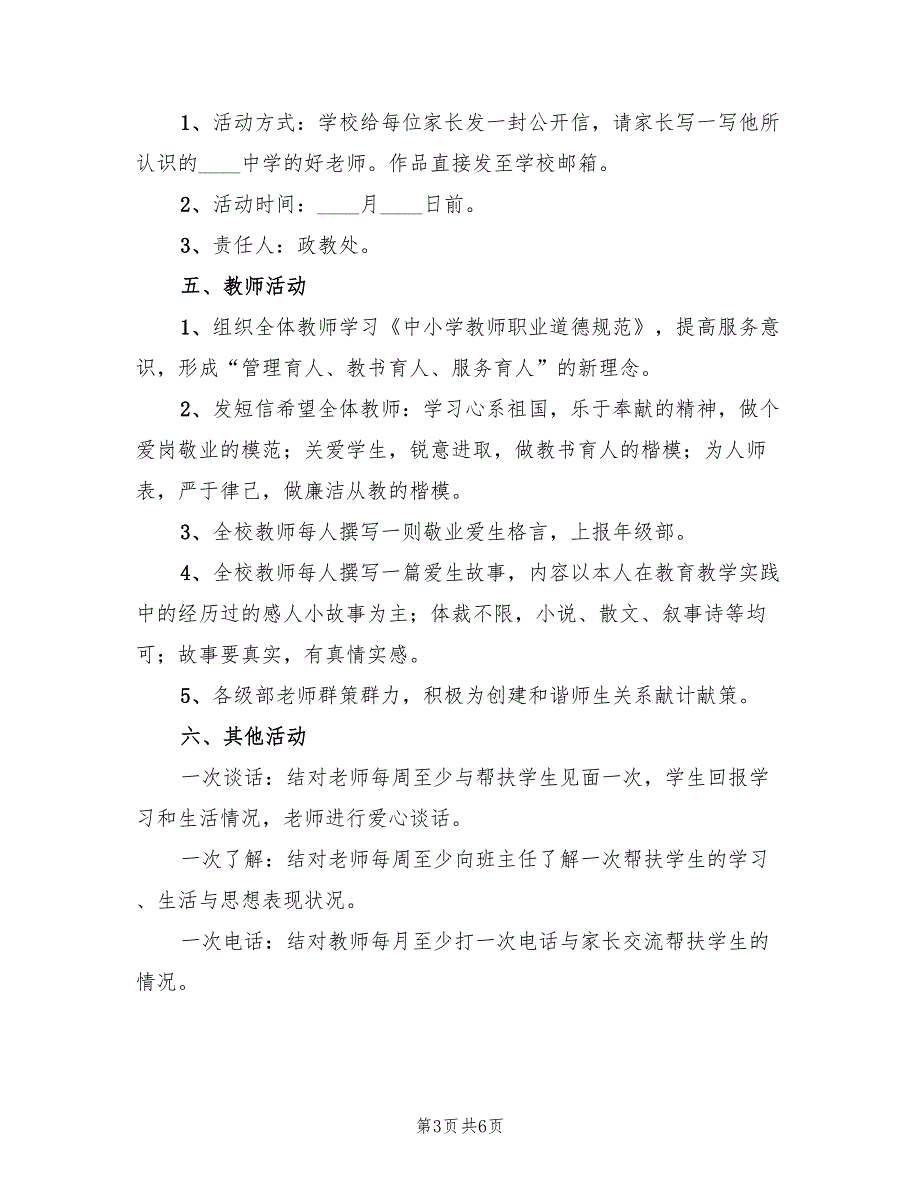 1、活动方式：学校给每位家长发一封公开信，请家长写一写他所
认识的____中学的好老师。作品直接发至学校邮箱。
2、活动时间：____月____日前。
3、责任人：政教处。
五、教师活动
1、组织全体教师学习《中小学教师职业道德规范》，提高服务意
识，形成“管理育人、教书育人、服务育人”的新理念。
2、发短信希望全体教师：学习心系祖国，乐于奉献的精神，做个
爱岗敬业的模范；关爱学生，锐意进取，做教书育人的楷模；为人师
表，严于律己，做廉洁从教的楷模。
3、全校教师每人撰写一则敬业爱生格言，上报年级部。
4、全校教师每人撰写一篇爱生故事，内容以本人在教育教学实践
中的经历过的感人小故事为主；体裁不限，小说、散文、叙事诗等均
可；故事要真实，有真情实感。
5、各级部老师群策群力，积极为创建和谐师生关系献计献策。
六、其他活动
一次谈话：结对老师每周至少与帮扶学生见面一次，学生回报学
习和生活情况，老师进行爱心谈话。
一次了解：结对老师每周至少向班主任了解一次帮扶学生的学习
、生活与思想表现状况。
一次电话：结对教师每月至少打一次电话与家长交流帮扶学生的
情况。
第3页 共6页